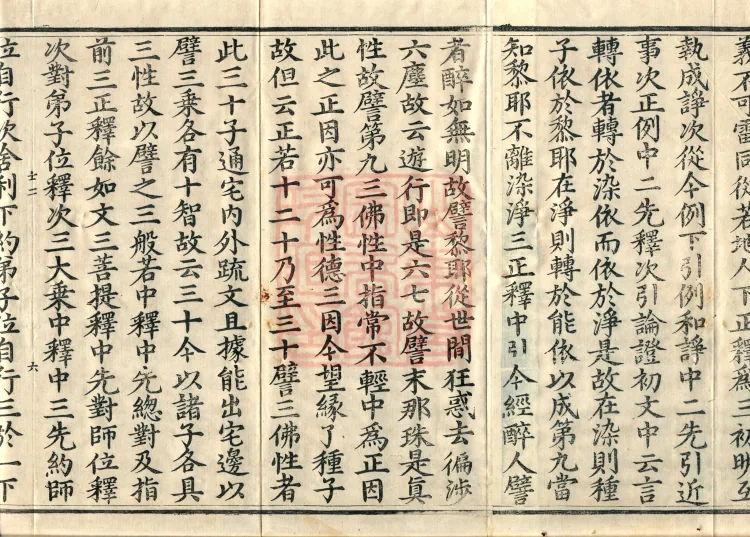 義不可雷同從若地人下正釋爲三初明
執成諍次從今例下引例和諍中二先引近
事次正例中二先釋次引論證初文中云言
轉依者轉於染依而依於淨是故在染則種
子依於黎耶在淨則轉於能依以成第九當
知黎耶不離染淨三正釋中引今經醉人譬
者醉如無明故譬黎耶從世間狂惑去徧涉
六塵故云遊行即是六七故譬末那珠是眞
性故譬第九三佛性中指常不輕中爲正因
此之正因亦可爲性德三因今望緣了種子
故但云正若十二十乃至三十譬三佛性者
此三十子通宅內外疏文且據能出宅邊以
譬三乘各有十智故云三十今以諸子各具
三性故以譬之三般若中釋中先總對及指
前三正釋餘如文三菩提釋中先對師位釋
次對弟子位釋次三大乗中釋中三先約師
士二
六
位自行次捨利下約弟子位自行三於一下